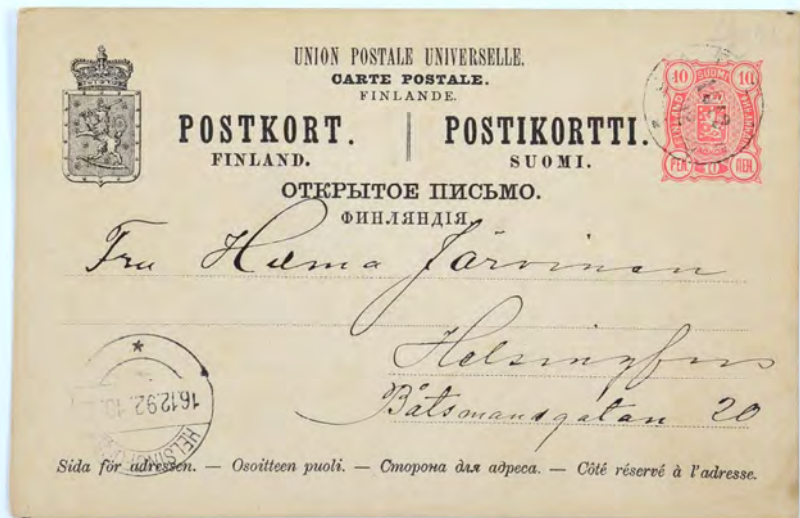 UNION POSTALE UNIVERSELLE.
CARTE POSTALE.
FINLANDE.
POSTKORT. POSTIKORTTI.
FINLAND. SUOMI.
ОТКРЫТОЕ ПИСЬМО.
ФИНЛЯНДІЯ.
10 SUOMI 10
FINLAND
PEN. 10 ПЕН.
Fru Hilma Järvinen
Helsingfors
Båtsmansgatan 20
16.12.92.
Sida för adressen. — Osoitteen puoli. — Сторона для адреса. — Côté réservé à l'adresse.